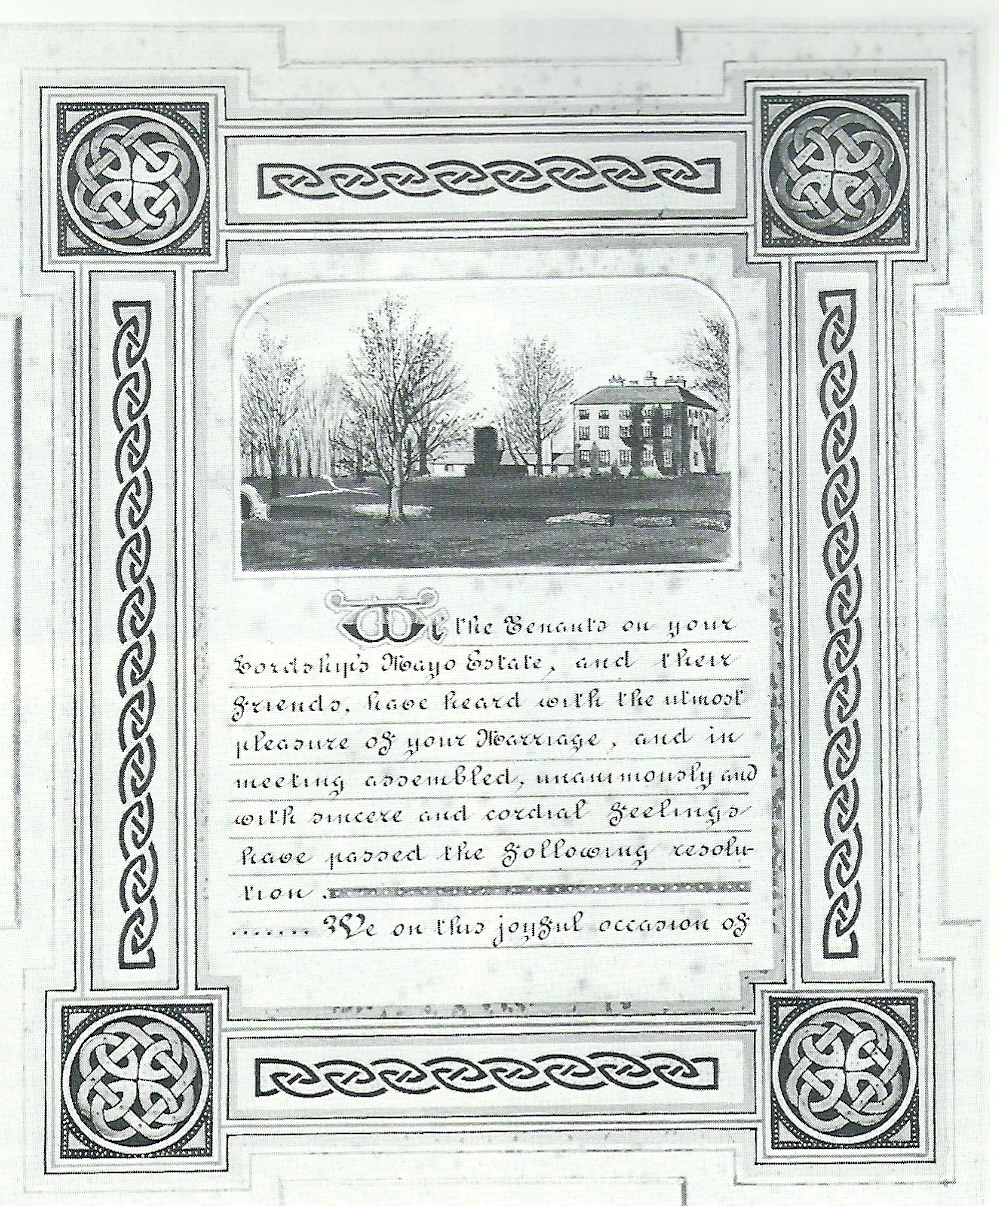 We the Tenants on your
Lordship's Mayo Estate, and their
Friends, have heard with the utmost
pleasure of your Marriage, and in
meeting assembled, unanimously and
with sincere and cordial feelings
have passed the following resolu-
tion.
....... We on this joyful occasion of